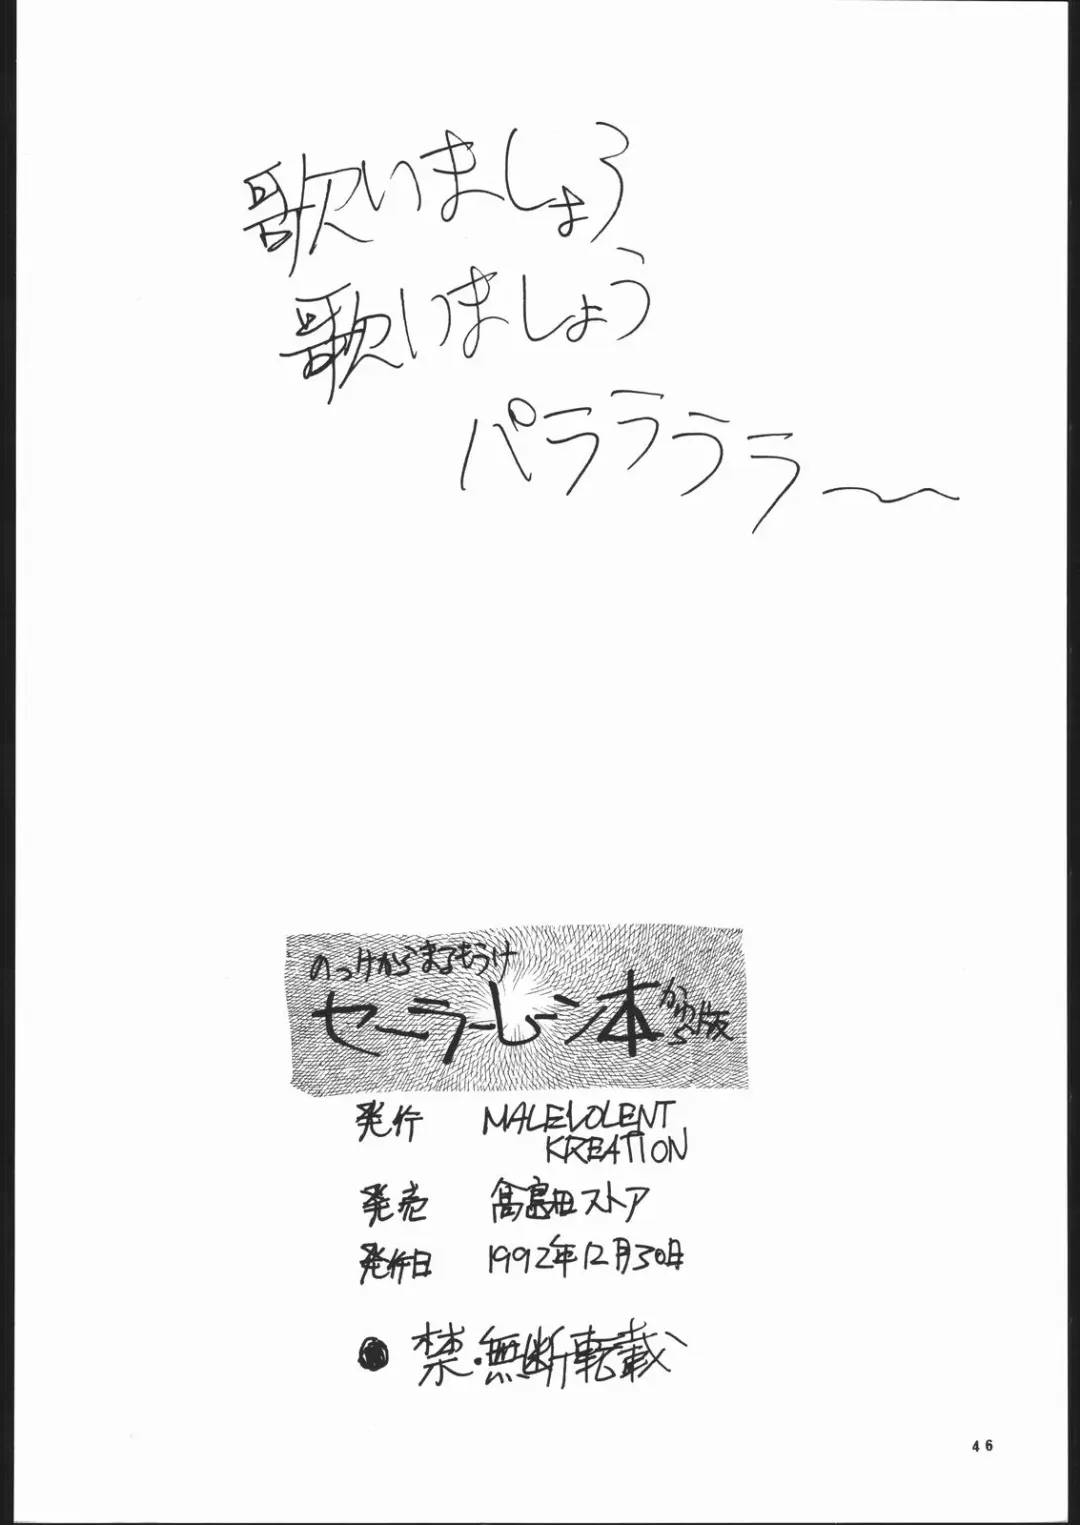 歌いましょう
歌いましょう
パララララ〜
のっけからまるもうけ
セーラームーン本 かゆら版
発行 MALEVOLENT
KREATION
発売 高島田ストア
発行日 1992年12月30日
● 禁・無断転載
46